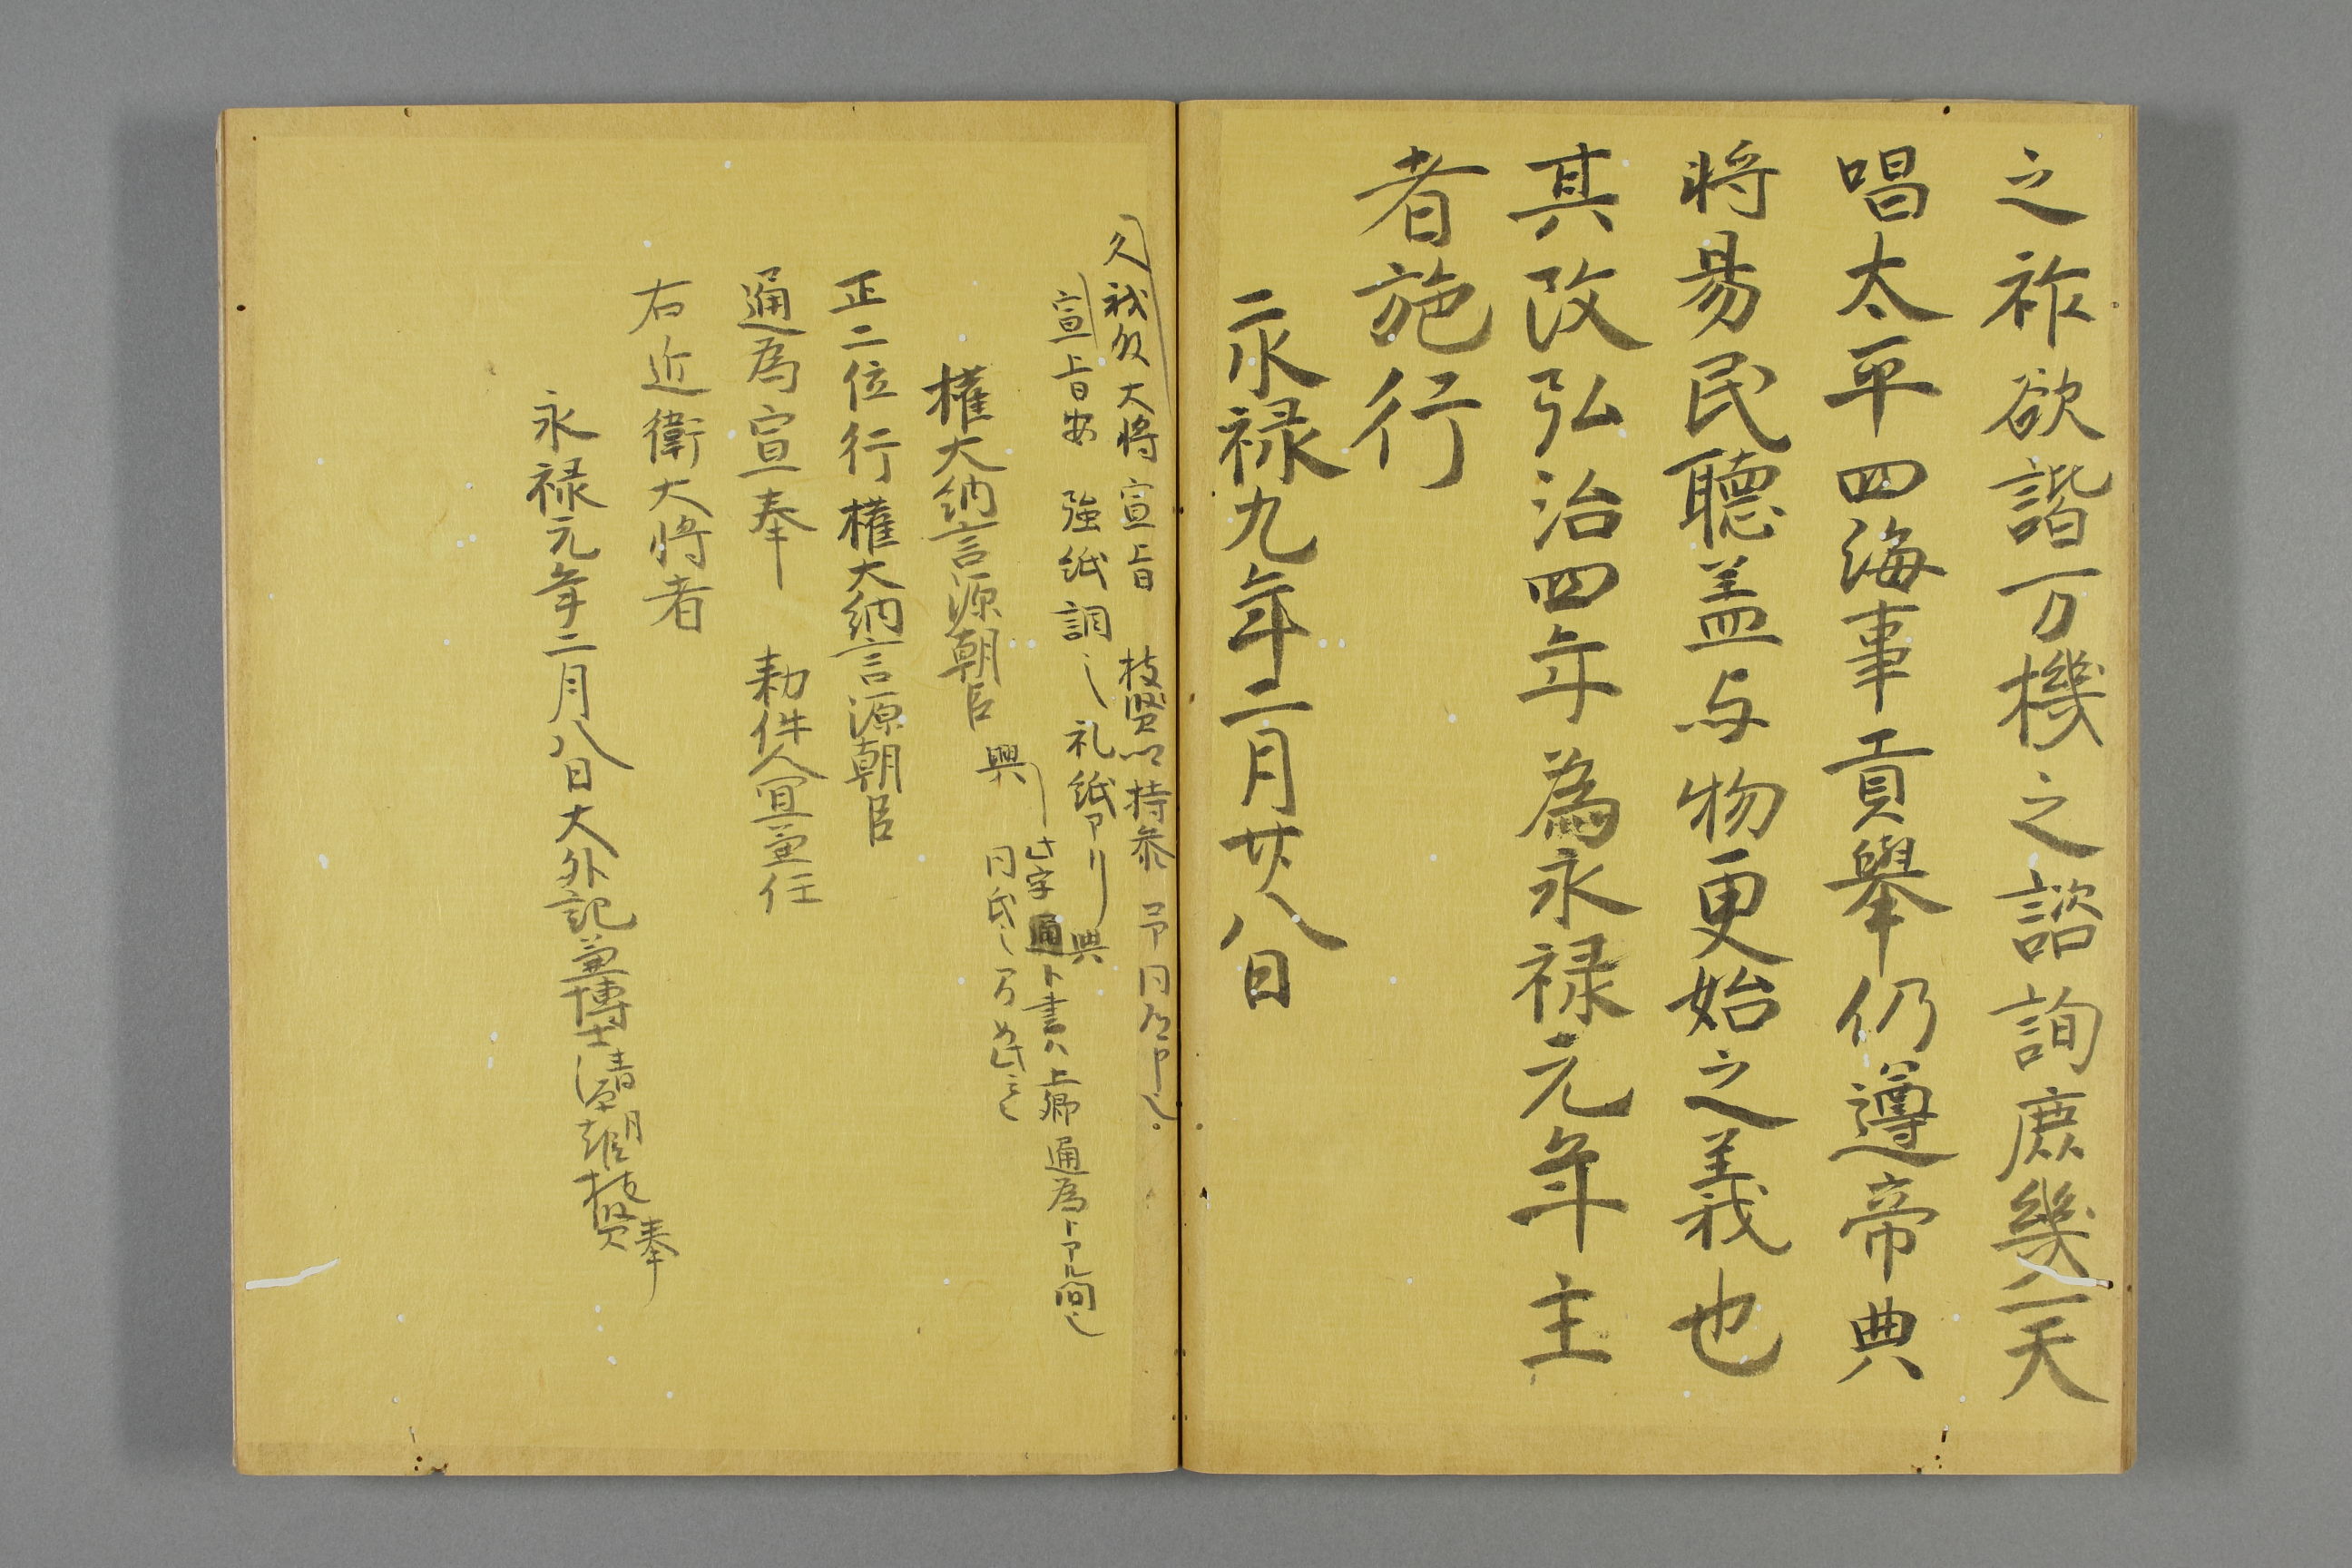 之祚欲諧万機之諮詢庶幾一天
唱太平四海事貢舉仍遵帝典
将易民聴盖与物更始之義也
其改弘治四年為永禄元年主
者施行
永禄元年二月廿八日
久我殿大将宣旨 枝賢ニ持参
宣旨 強紙調之 礼紙アリ
権大納言源朝臣
興 此字通ト書ハ上卿通為トアル間也
正二位行権大納言源朝臣
通為宣奉 勅件人宜兼任
右近衛大将者
永禄元年二月八日大外記兼博士清原朝臣枝賢奉